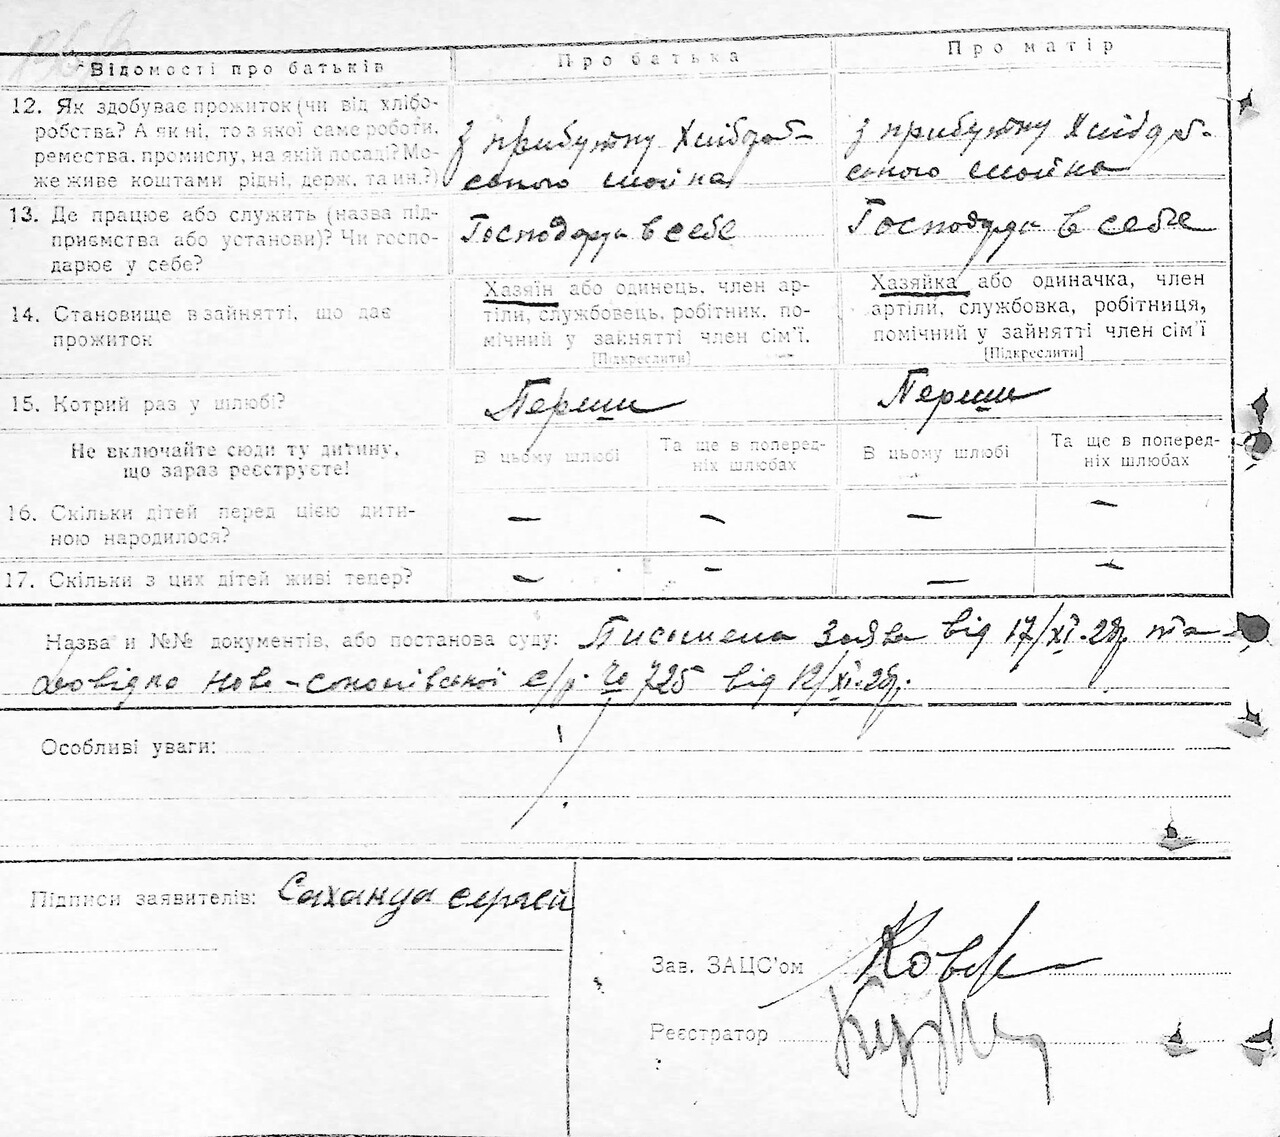 Відомості про батьків
Про батька
Про матір
12. Як здобуває прожиток (чи від хлібо-
робства? А як ні, то з якої саме роботи,
ремества, промислу, на якій посаді? Мо-
же живе коштами рідні, держ. та ин.?)
з прибутку Хлібороб-
ського
з прибутку Хлібороб-
ського
13. Де працює або служить (назва під-
приємства або установи)? Чи госпо-
дарює у себе?
Господарує в себе
Господарує в себе
14. Становище в зайнятті, що дає
прожиток
Хазяїн або одинець, член ар-
тілі, службовець, робітник, по-
мічний у зайнятті член сім'ї.
[Підкреслити]
Хазяйка або одиначка, член
артілі, службовка, робітниця,
помічний у зайнятті член сім'ї
[Підкреслити]
15. Котрий раз у шлюбі?
Перший
Перший
Не включайте сюди ту дитину,
що зараз реєструєте!
В цьому шлюбі
Та ще в поперед-
ніх шлюбах
В цьому шлюбі
Та ще в поперед-
ніх шлюбах
16. Скільки дітей перед цією дити-
ною народилося?
— — — —
17. Скільки з цих дітей живі тепер?
— — — —
Назва й №№ документів, або постанова суду: Письмена заява від 17/XI-28р. та
довідка Ново- с/р. № 725 від 12/XI-28р.
Особливі уваги:
Підписи заявителів: Саханда Сергей
Зав. ЗАЦС'ом
Реєстратор